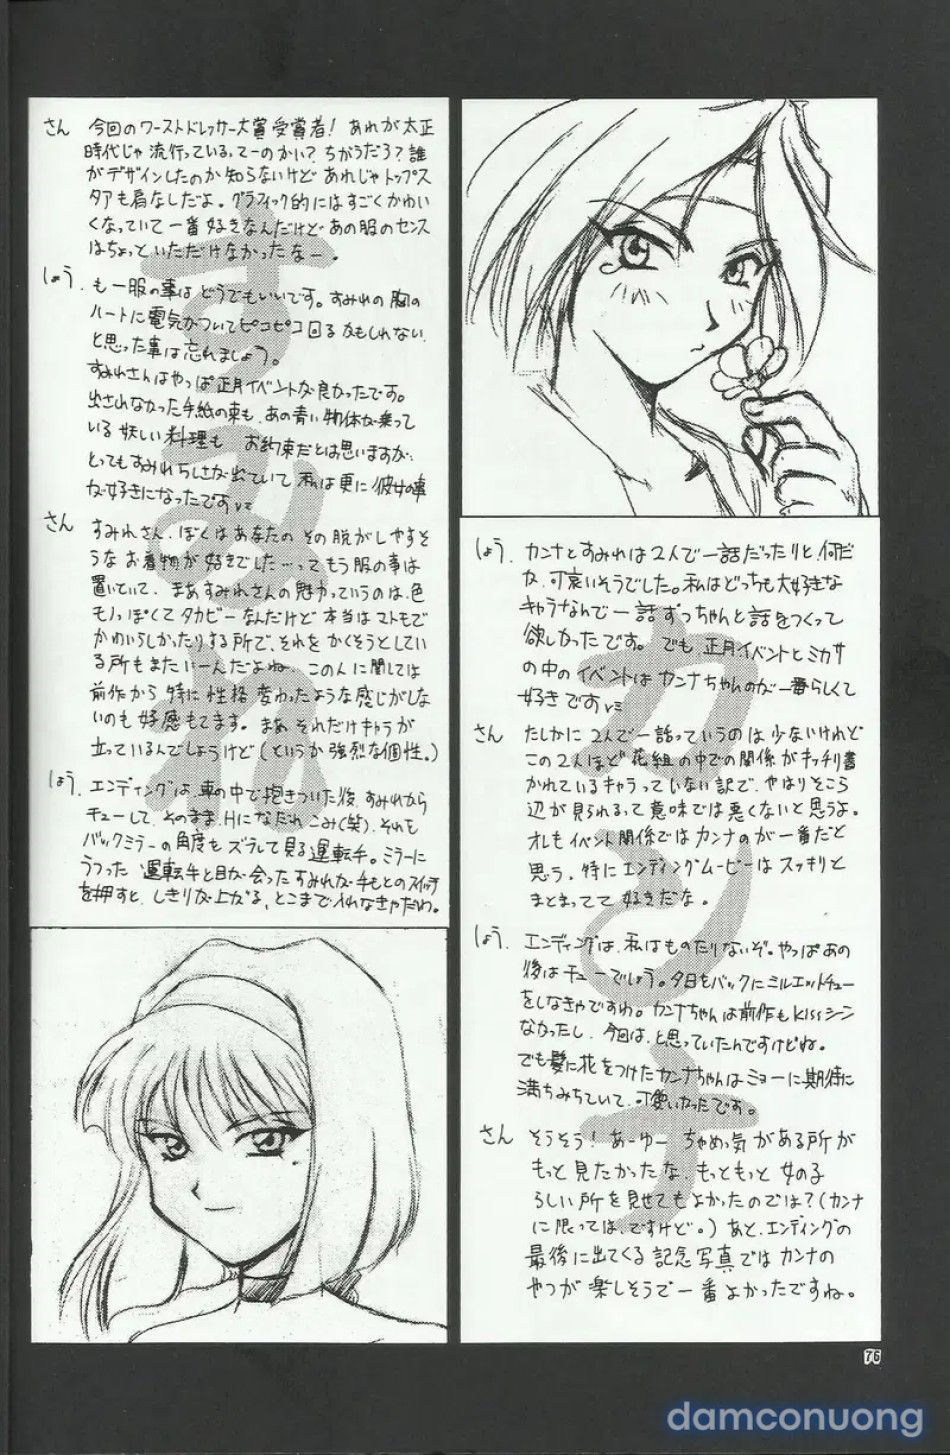 さん 今回のワーストドレッサー大賞受賞者! あれが太正
時代じゃ流行っている、てーのかい? ちがうだろ? 誰
がデザインしたのか知らないけど あれじゃトップス
タアも肩なしだよ。グラフィック的にはすごくかわい
くなっていて一番好きなんだけど あの服のセンス
はちょっといただけなかったなー。
しょう. も一服の事はどうでもいいです。すみれの胸の
ハートに電気がついてピコピコ回るかもしれない、
と思った事は忘れましょう。
すみれさんはやっぱ正月イベントが良かったです。
出されなかった手紙の束も、あの青い物体が乗って
いる妖しい料理も お約束だとは思いますが、
とってもすみれらしさが出ていて 私は更に彼女の事
が好きになったです
さん すみれさん、ぼくはあなたの その脱がしやすそ
うな お着物が好きでした…って もう服の事は
置いといて、まあすみれさんの魅力っていうのは、色
モノっぽくてタカビーなんだけど 本当はストモで
かわいらしかったりする所で、それを かくそうとしてい
る所もまたいーんだよね。この人に関しては
前作から 特に性格変わったような感じがしな
いのも 好感もてます。まあ それだけキャラが
立っているんでしょうけど(というか強烈な個性。)
しょう. エンディングは、車の中で抱きついた後、すみれから
チューして、そのままHになだれこみ(笑)、それを
バックミラーの角度もズラして見る運転手。ミラーに
うつった 運転手と目が会ったすみれが、手もとのスイッチ
を押すと、しきりが上がる、とこまで入れなきゃだわ。
すみれ
しょう. カンナとすみれは2人で一話だったりと、何だ
か、可哀いそうでした。私はどっちも大好きな
キャラなんで 一話ずつちゃんと話をつくって
欲しかったです。でも 正月イベントとミカサ
の中のイベントは カンナちゃんのが一番らしくて
好きです
さん たしかに 2人で一話っていうのは少ないけれど
この2人ほど花組の中での関係がキッチリ書
かれているキャラっていない訳で、やはりそこら
辺が見られるって意味では悪くないと思うよ。
オレもイベント関係ではカンナのが一番だと
思う、特にエンディングムービーはスッキリと
まとまってて好きだな。
しょう. エンディングは、私はものたりないぞ。やっぱあの
後はチューでしょう。夕日をバックにシルエットチュー
をしなきゃですわ。カンナちゃんは前作もkissシーン
なかったし、今回は、と思っていたんですけどね。
でも髪に花をつけたカンナちゃんはミョーに期待に
満ちみちていて、可愛いかったです。
さん そうそう! あーゆー ちゃめっ気がある所が
もっと見たかったな、もっともっと 女の子
らしい所を見せてもよかったのでは?(カンナ
に限っては、ですけど。)あと、エンディングの
最後に出てくる記念写真では カンナの
やつが楽しそうで一番よかったですね。
カンナ
76
damconuong